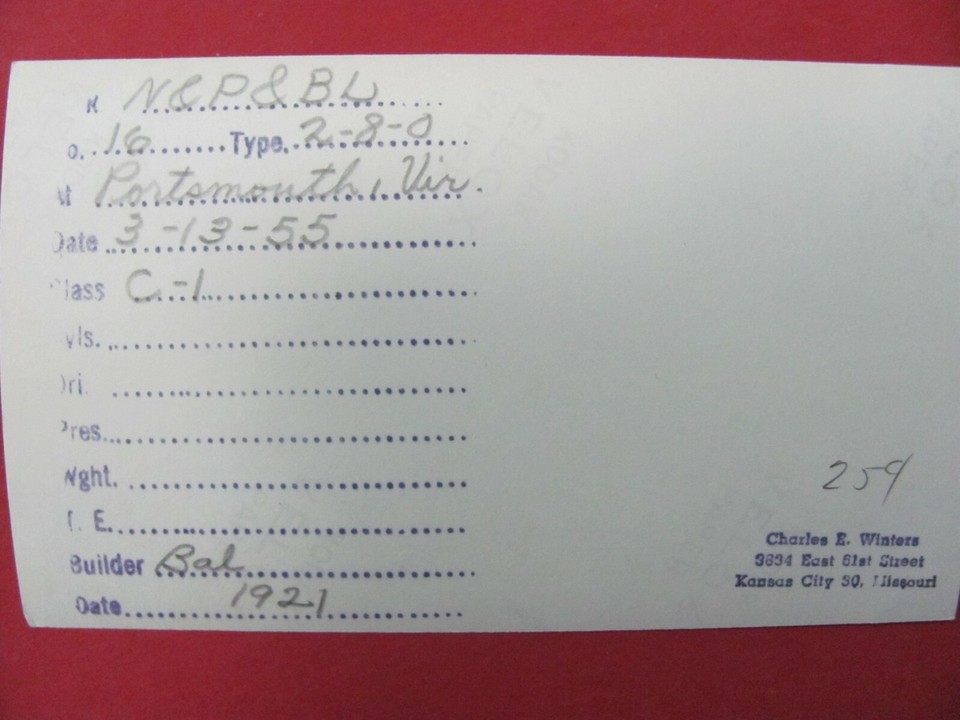 R N&P&BL
o. 16 Type. 2-8-0
At Portsmouth, Vir.
Date 3-13-55
Class C-1
vls.
Dri.
Pres.
Wght.
T. E.
Builder Bal
Date 1921
259
Charles E. Winters
3634 East 61st Street
Kansas City 30, Missouri